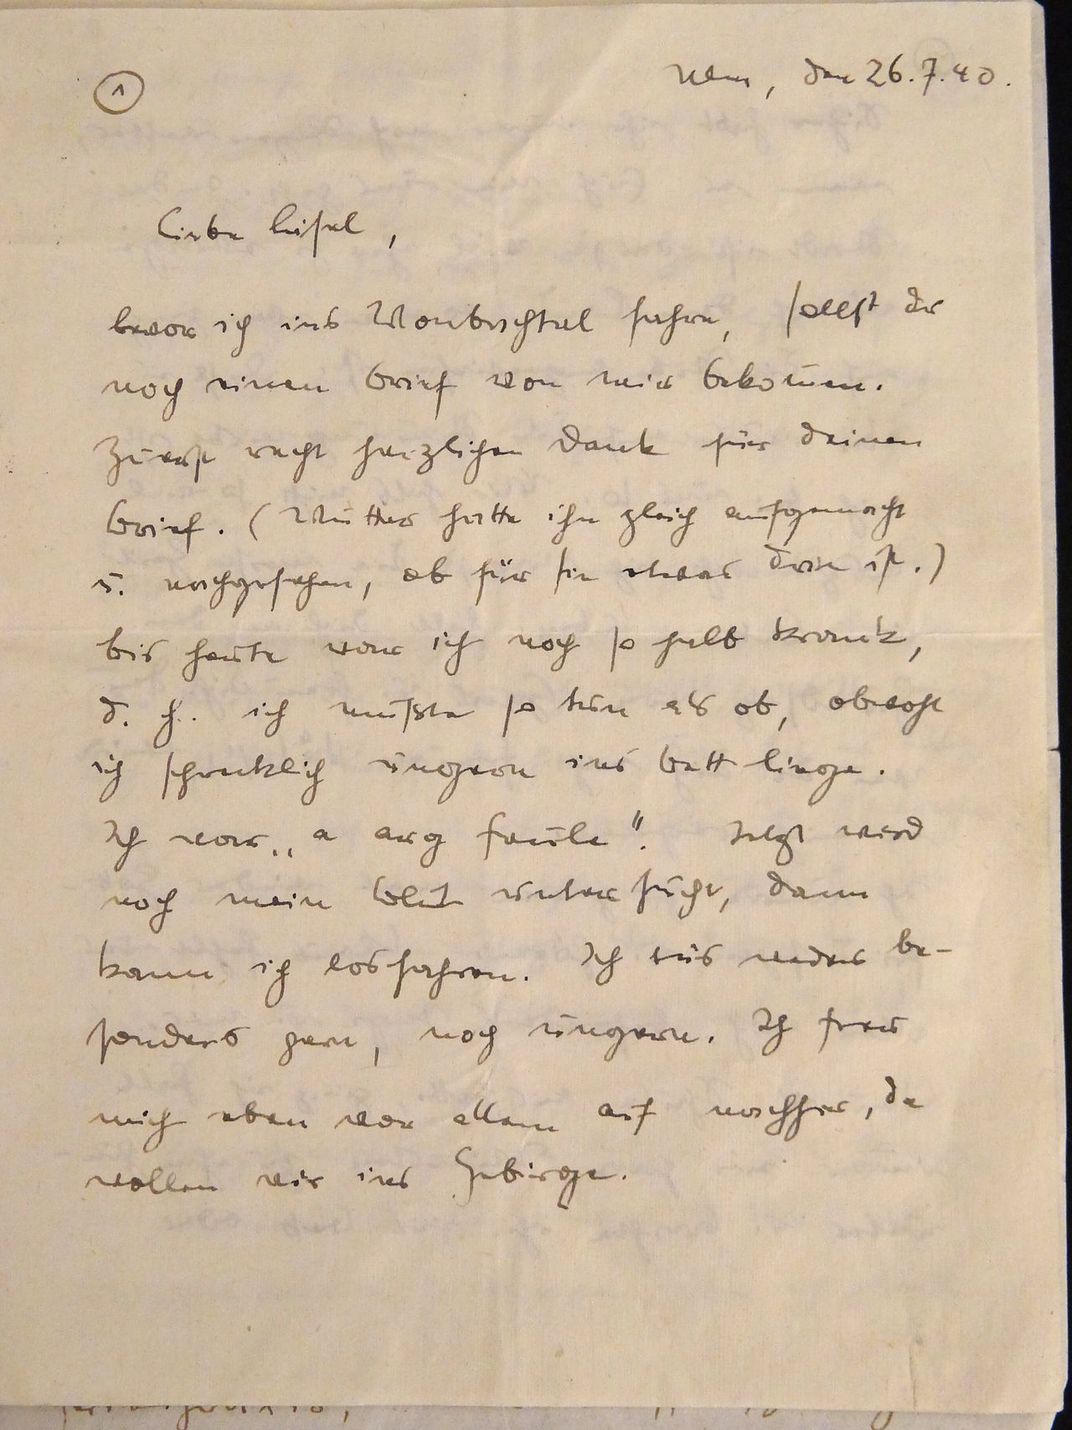 ①
Ulm, den 26.7.40.
Liebe Lisel,
bevor ich ins Montischtal fahre, sollst du
noch einen Brief von mir bekommen.
Zuerst recht herzlichen Dank für deinen
Brief. (Mutter hatte ihn gleich aufgemacht
u. nachgesehen, ob für sie etwas drin ist.)
bis heute war ich noch so halb krank,
d. h. ich mußte so tun als ob, obwohl
ich schrecklich ungern ins Bett liege.
Ich war „a arg faule". Jetzt wird
noch mein Blut untersucht, dann
kann ich losfahren. Ich tus weder be-
sonders gern, noch ungern. Ich freu
mich eben vor allem auf nachher, da
wollen wir ins Gebirge.